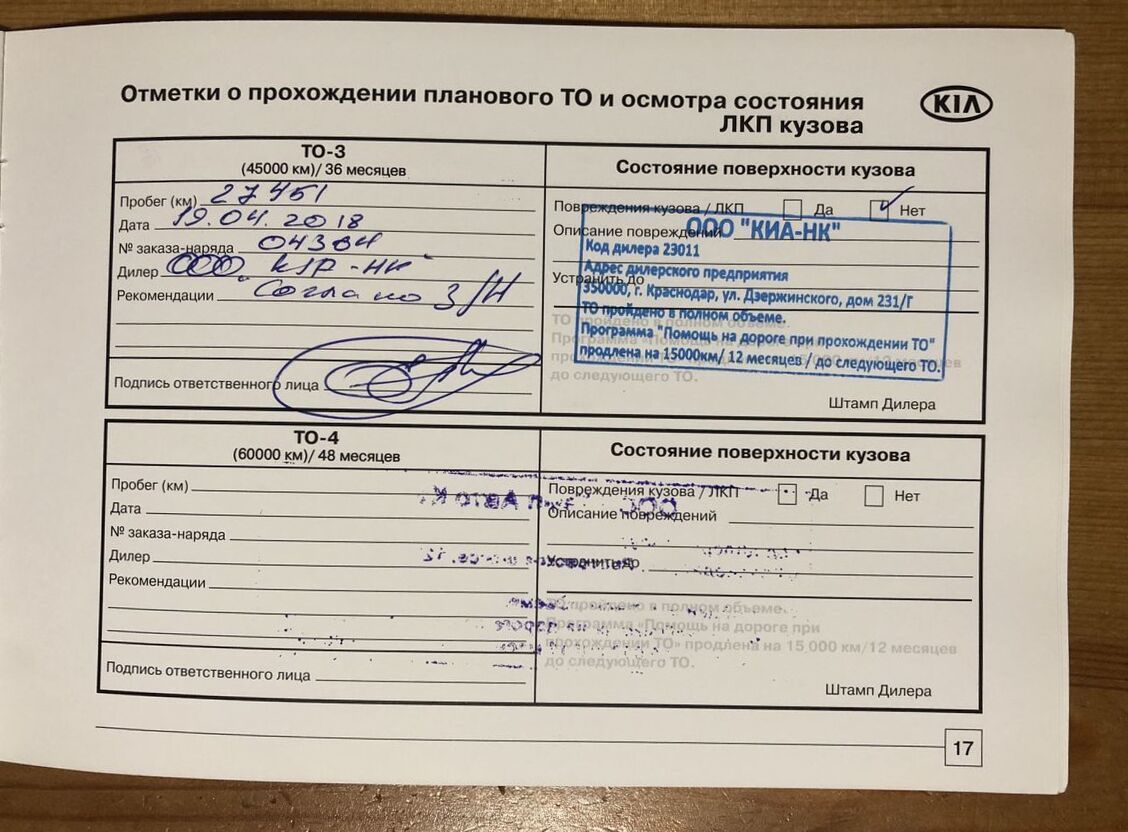 Отметки о прохождении планового ТО и осмотра состояния
ЛКП кузова
KIA
ТО-3
(45000 км)/ 36 месяцев
Пробег (км) 27451
Дата 19.04.2018
№ заказа-наряда
Дилер ООО "КИА-НК"
Рекомендации З/Н
Подпись ответственного лица
Состояние поверхности кузова
Повреждения кузова / ЛКП Да Нет
Описание повреждений
Устранить до
ООО "КИА-НК"
Код дилера 23011
Адрес дилерского предприятия
350000, г. Краснодар, ул. Дзержинского, дом 231/Г
ТО пройдено в полном объеме.
Программа "Помощь на дороге при прохождении ТО"
продлена на 15000км/ 12 месяцев / до следующего ТО.
ТО пройдено в полном объеме.
Программа «Помощь на дороге при
прохождении ТО» продлена на 15 000 км/12 месяцев
до следующего ТО.
Штамп Дилера
ТО-4
(60000 км)/ 48 месяцев
Пробег (км)
Дата
№ заказа-наряда
Дилер
Рекомендации
Подпись ответственного лица
Состояние поверхности кузова
Повреждения кузова / ЛКП Да Нет
Описание повреждений
Устранить до
ТО пройдено в полном объеме.
Программа «Помощь на дороге при
прохождении ТО» продлена на 15 000 км/12 месяцев
до следующего ТО.
Штамп Дилера
17